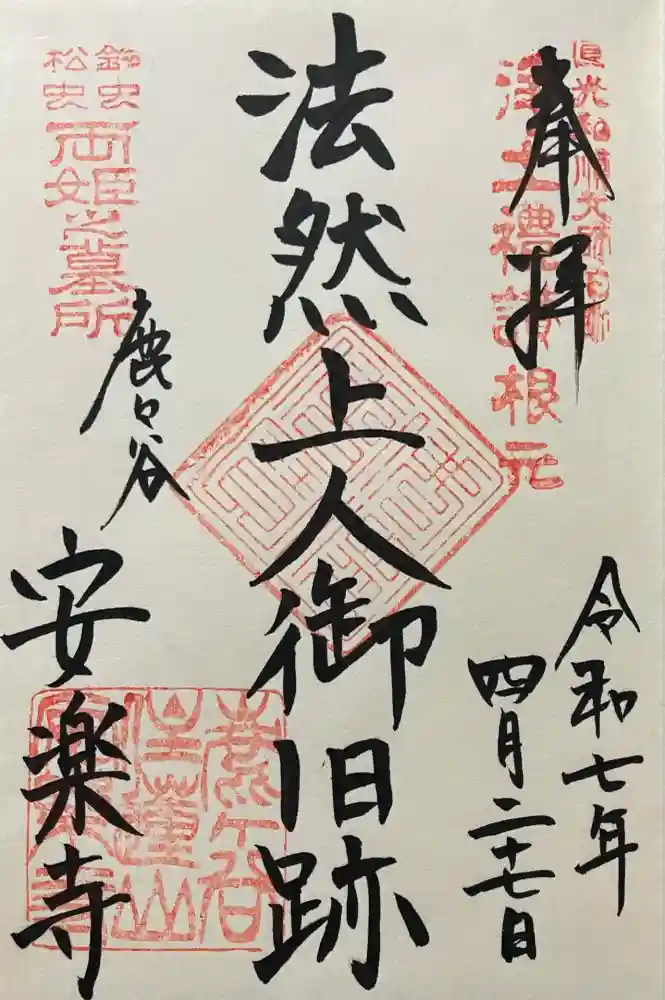 奉拝
浄土礼讃根元
令和七年
四月二十七日
法然上人御旧跡
鈴虫
松虫
両姫之墓所
鹿ヶ谷
住蓮山
安楽寺
鹿ヶ谷
安楽寺